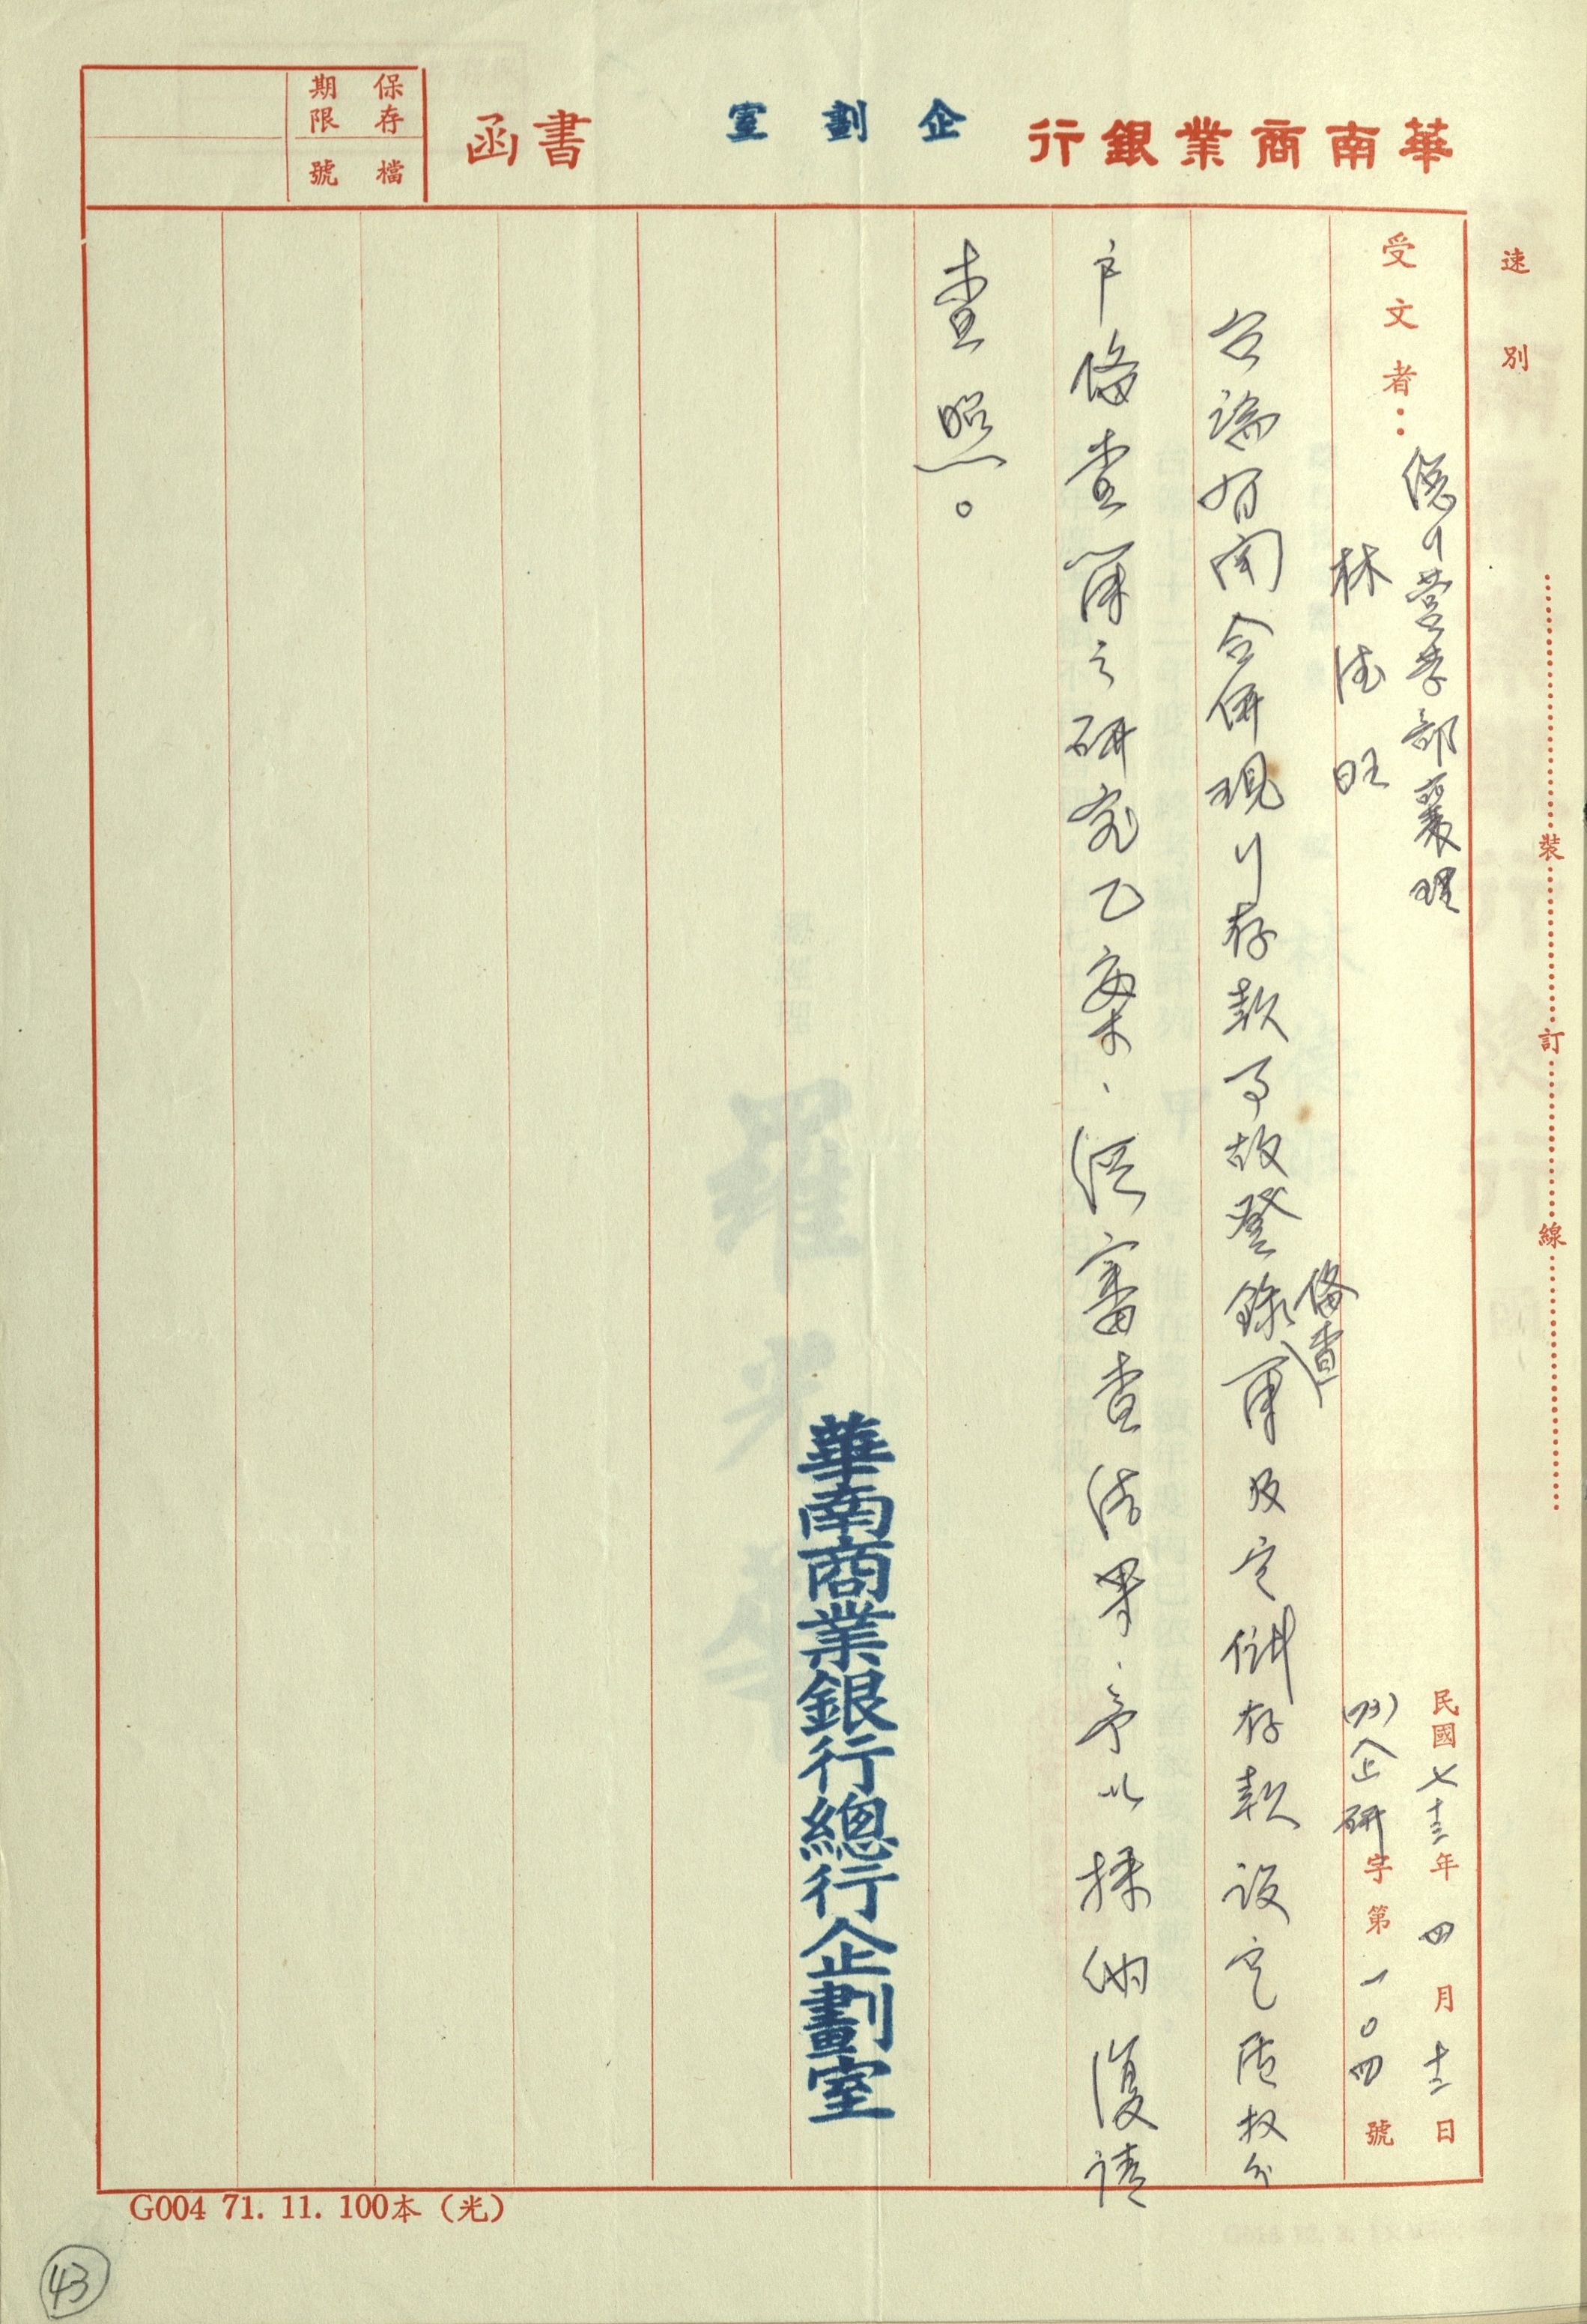 華南商業銀行 企劃室 書函
保存期限
檔號
速別
受文者：總行營業部襄理
林法旺
民國七十三年四月十二日
(73)企研字第一0四號
台端有關合併現行存款事故登錄備查簿及定備存款設定質权分
戶備查簿之研究乙案、經審查結果、予以採納復請
查照。
華南商業銀行總行企劃室
裝
訂
線
G004 71. 11. 100本（光）
43